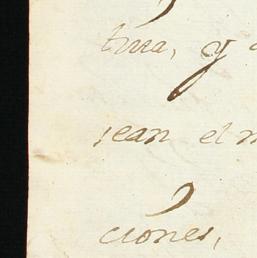 tina, y
sean el
ciones,